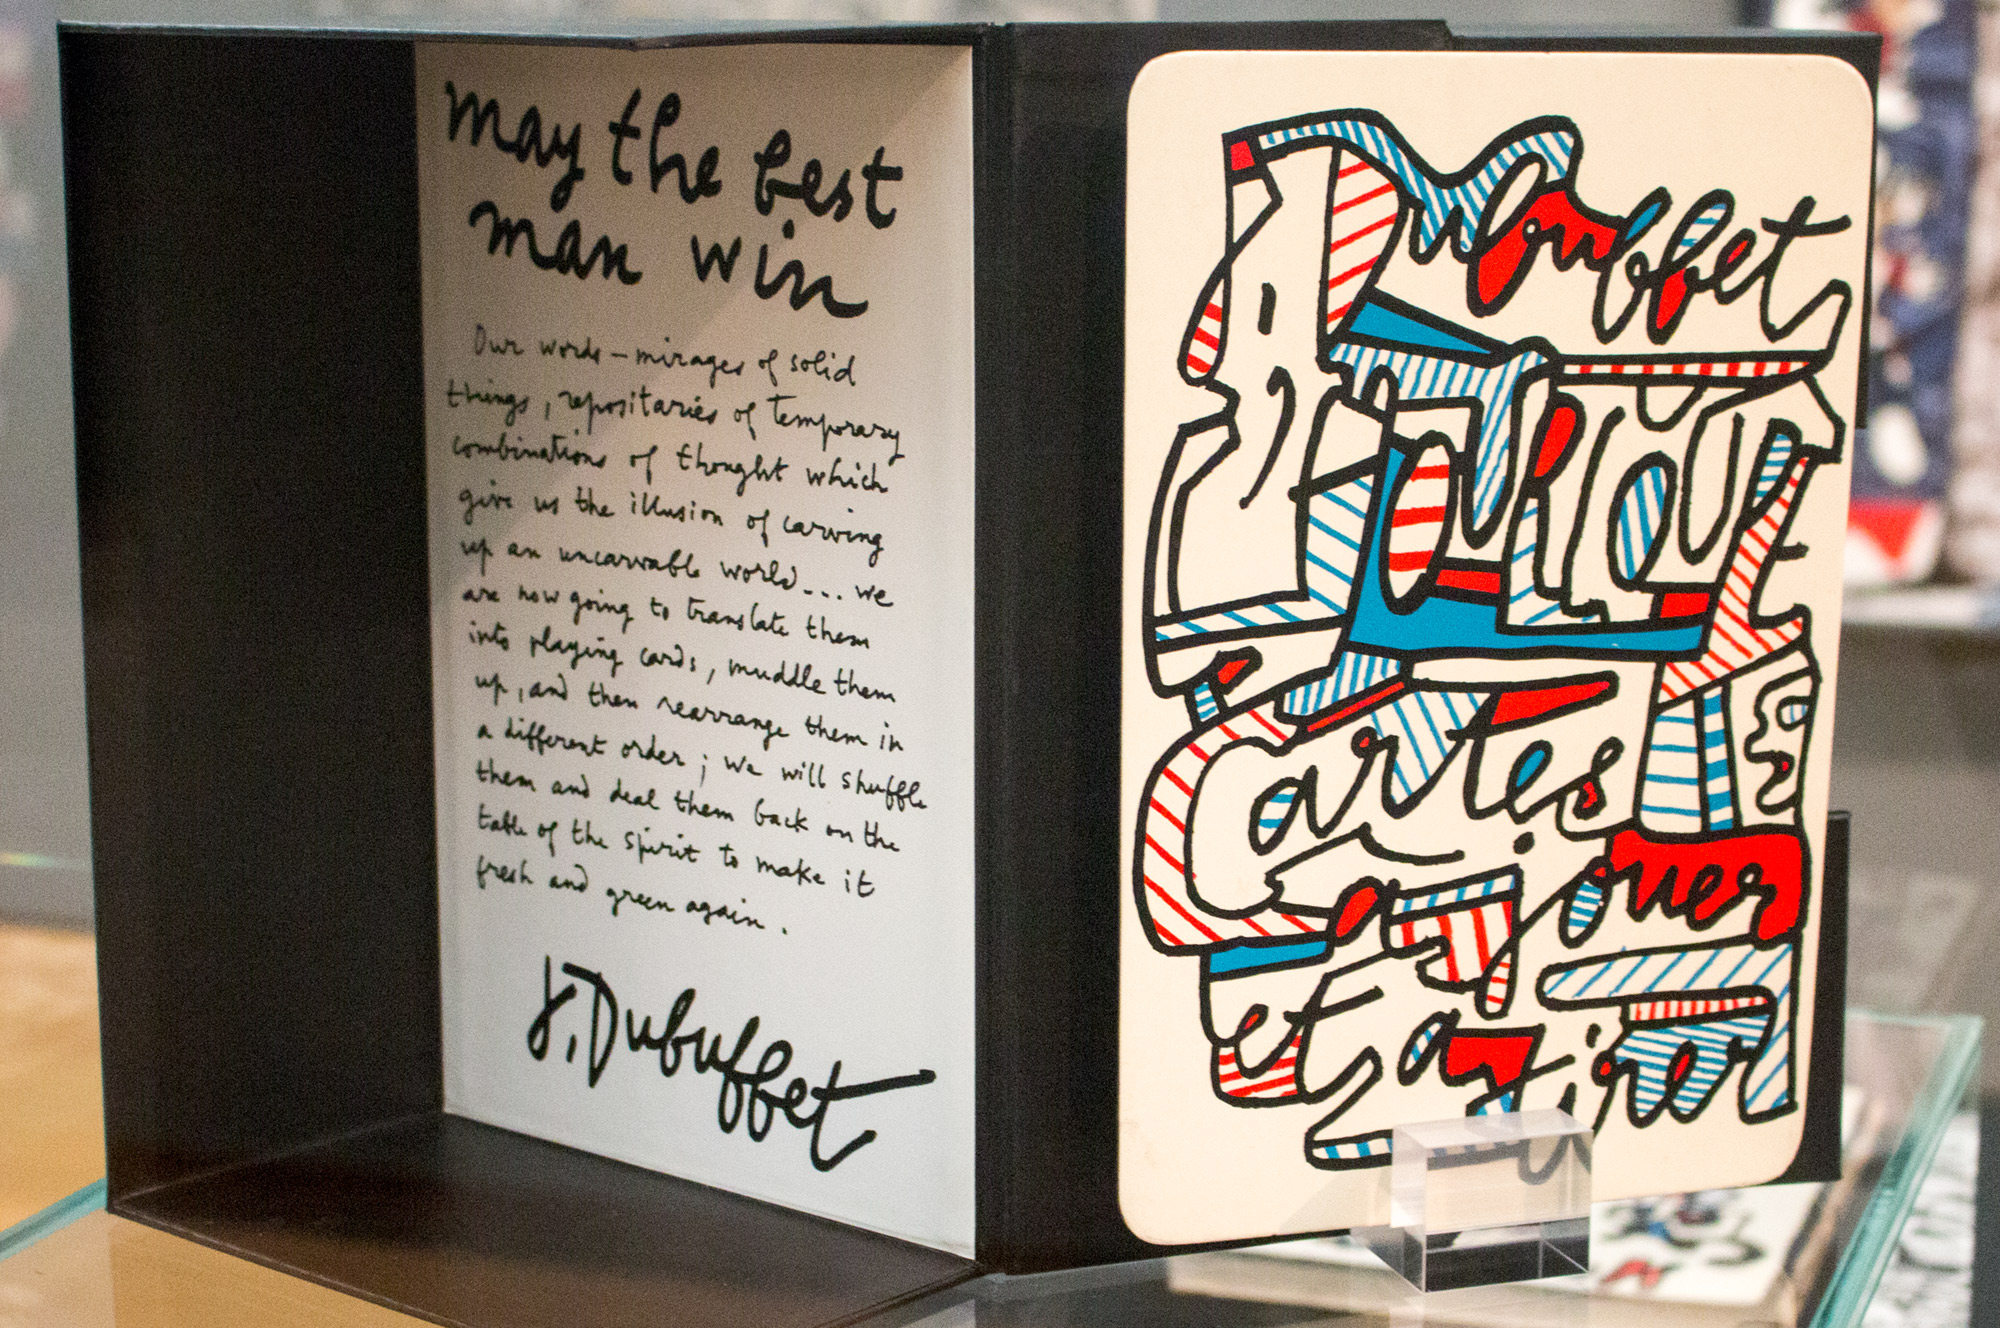 may the best
man win
Our words – mirages of solid
things, repositaries of temporary
combinations of thought which
give us the illusion of carving
up an uncarvable world... we
are now going to translate them
into playing cards, muddle them
up, and then rearrange them in
a different order; we will shuffle
them and deal them back on the
table of the spirit to make it
fresh and green again.
J. Dubuffet
Dubuffet
Banque
Cartes
à jouer
et à tirer